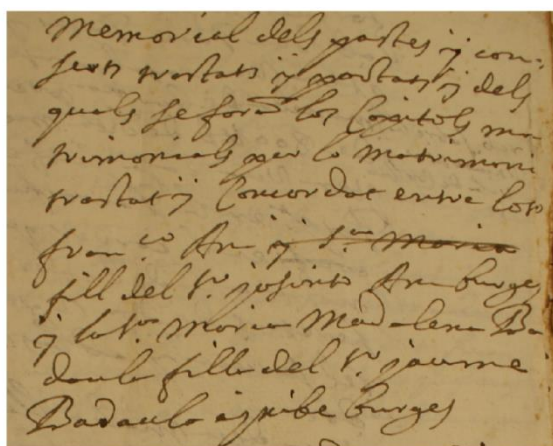 Memorial dels pactes y con-
serts tractats y pactats y dels
quals se foran los Capitols ma
trimonials per lo matrimoni
tractat y Concordat entre lo Sr
franco Am y Sra Maria
fill del Sr josinto Am burges
y la Sra Maria Madalena Ba
daula filla del Sr jaume
Badaula burges